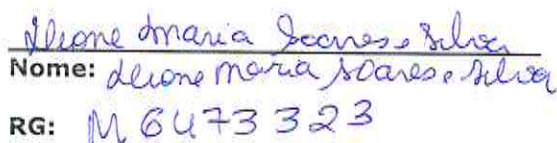 Deione Maria Soares e Silva
Nome: deione maria soares e silva
RG: M6473323